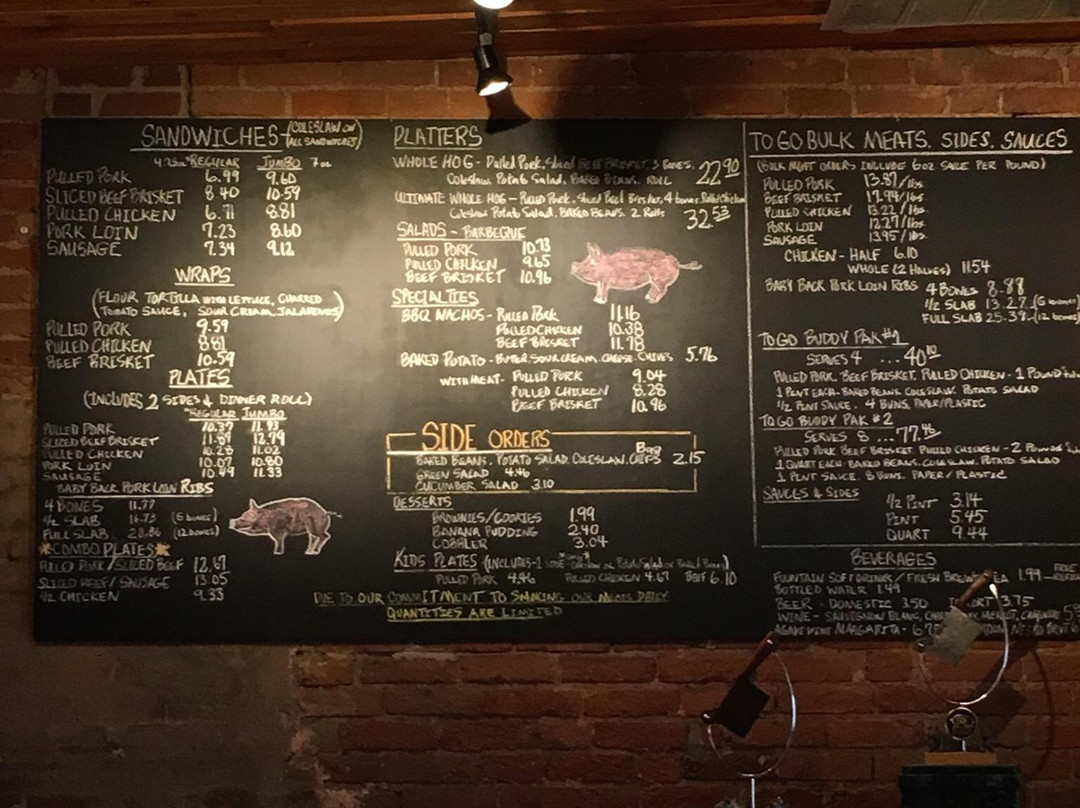 SANDWICHES - (COLESLAW ON ALL SANDWICHES)
4.75oz REGULAR JUMBO 7oz
PULLED PORK 6.99 9.60
SLICED BEEF BRISKET 8.40 10.59
PULLED CHICKEN 6.71 8.81
PORK LOIN 7.23 8.60
SAUSAGE 7.34 9.12
WRAPS
(FLOUR TORTILLA WITH LETTUCE, CHARRED
TOMATO SAUCE, SOUR CREAM, JALAPENOS)
PULLED PORK 9.59
PULLED CHICKEN 8.81
BEEF BRISKET 10.59
PLATES
(INCLUDES 2 SIDES & DINNER ROLL)
REGULAR JUMBO
PULLED PORK 10.37 11.93
SLICED BEEF BRISKET 11.89 12.79
PULLED CHICKEN 10.28 11.02
PORK LOIN 10.07 10.80
SAUSAGE 10.49 11.33
BABY BACK PORK LOIN RIBS
4 BONES 11.77
1/2 SLAB 16.73 (6 bones)
FULL SLAB 28.86 (12 bones)
COMBO PLATES
PULLED PORK/SLICED BEEF 12.67
SLICED BEEF/SAUSAGE 13.05
1/2 CHICKEN 9.33
PLATTERS
WHOLE HOG - Pulled Pork, Sliced BEEF BRISKET, 3 BONES,
Coleslaw, Potato Salad, BAKED BEANS, ROLL 22.90
ULTIMATE WHOLE HOG - Pulled Pork, Sliced Beef Brisket, 4 bones, Pulled Chicken
Coleslaw, Potato Salad, BAKED BEANS, 2 Rolls 32.53
SALADS - BARBEQUE
PULLED PORK 10.73
PULLED CHICKEN 9.65
BEEF BRISKET 10.96
SPECIALTIES
BBQ NACHOS - PULLED PORK 11.16
PULLED CHICKEN 10.38
BEEF BRISKET 11.78
BAKED POTATO - BUTTER, SOUR CREAM, CHEESE, CHIVES 5.76
WITH MEAT - PULLED PORK 9.04
PULLED CHICKEN 8.28
BEEF BRISKET 10.96
SIDE ORDERS
BAKED BEANS, POTATO SALAD, COLESLAW, CHIPS 2.15
GREEN SALAD 4.46
CUCUMBER SALAD 3.10
DESSERTS
BROWNIES/COOKIES 1.99
BANANA PUDDING 2.40
COBBLER 3.04
KIDS PLATES (INCLUDES - 1 SIDE
PULLED PORK 4.46 PULLED CHICKEN 4.67 BEEF 6.10
DUE TO OUR COMMITMENT TO SMOKING OUR MEATS DAILY
QUANTITIES ARE LIMITED
TO GO BULK MEATS, SIDES, SAUCES
(BULK MEAT ORDERS INCLUDE 6oz SAUCE PER POUND)
PULLED PORK 13.87/lbs.
BEEF BRISKET 17.94/lbs.
PULLED CHICKEN 13.22/lbs.
PORK LOIN 12.27/lbs.
SAUSAGE 13.95/lbs.
CHICKEN - HALF 6.10
WHOLE (2 HALVES) 11.54
BABY BACK PORK LOIN RIBS 4 BONES 8.98
1/2 SLAB 13.27 (6 bones
FULL SLAB 25.39 (12 bones
TO GO BUDDY PAK #1
SERVES 4 ... 40
PULLED PORK, BEEF BRISKET, PULLED CHICKEN - 1 POUND
1 PINT EACH - BAKED BEANS, COLESLAW, POTATO SALAD
1/2 PINT SAUCE, 4 BUNS, PAPER/PLASTIC
TO GO BUDDY PAK #2
SERVES 8 ... 77
PULLED PORK, BEEF BRISKET, PULLED CHICKEN - 2 POUNDS
1 QUART EACH - BAKED BEANS, COLESLAW, POTATO SALAD
1 PINT SAUCE, 8 BUNS, PAPER/PLASTIC
SAUCES & SIDES 1/2 PINT 3.14
PINT 5.45
QUART 9.44
BEVERAGES
FOUNTAIN SOFT DRINKS / FRESH BREWED TEA 1.99 FREE
BOTTLED WATER 1.49
BEER - DOMESTIC 3.50 3.75
WINE - SAUVIGNON BLANC, MERLOT,
AGAVE WINE MARGARITA -